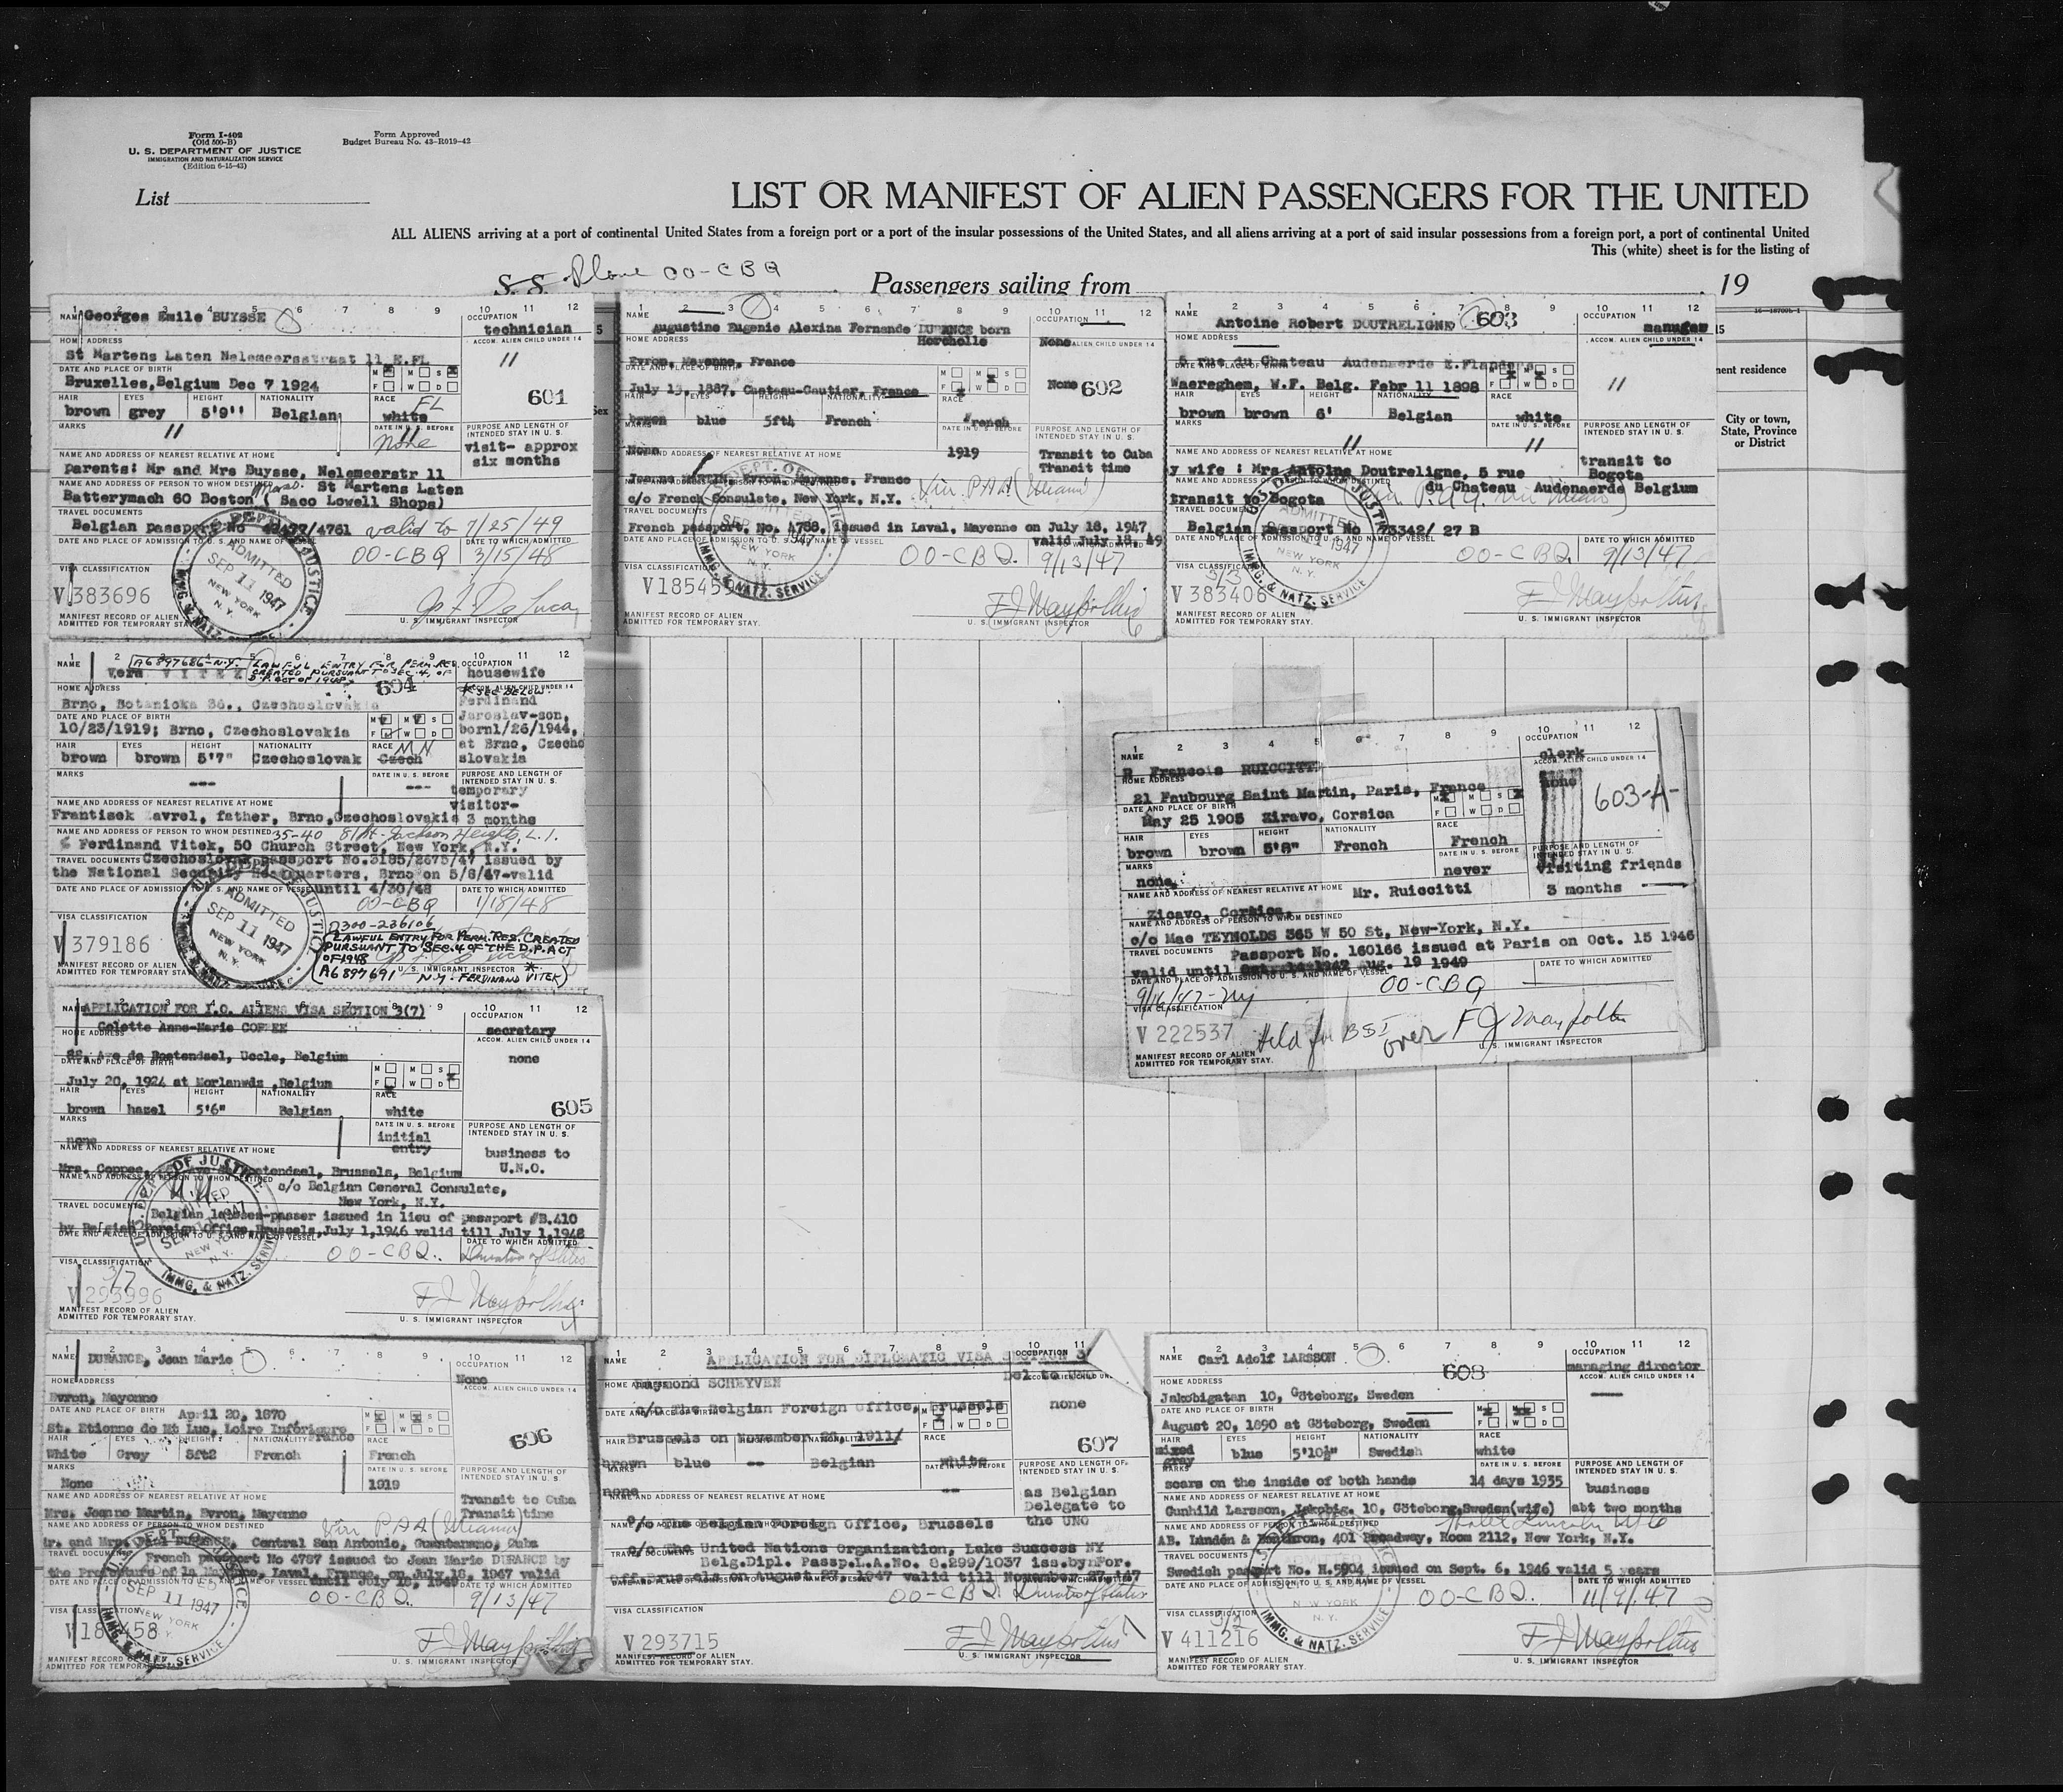 Form I-402
(Old 500-B)
U. S. DEPARTMENT OF JUSTICE
IMMIGRATION AND NATURALIZATION SERVICE
(Edition 6-15-43)
Form Approved
Budget Bureau No. 43-R019-42
List
LIST OR MANIFEST OF ALIEN PASSENGERS FOR THE UNITED
ALL ALIENS arriving at a port of continental United States from a foreign port or a port of the insular possessions of the United States, and all aliens arriving at a port of said insular possessions from a foreign port, a port of continental United
This (white) sheet is for the listing of
S. S. Plane OO-CBQ Passengers sailing from 19
1 2 3 4 5 6 7 8 9 10 11 12
NAME Georges Emile BUYSSE
OCCUPATION
technician
HOME ADDRESS
ACCOM. ALIEN CHILD UNDER 14
St Martens Laten Nelemeersstraat 11 E.FL
DATE AND PLACE OF BIRTH
M M S
F W D
Bruxelles, Belgium Dec 7 1924
601
HAIR EYES HEIGHT NATIONALITY RACE FL
brown grey 5'9'' Belgian white
MARKS
DATE IN U. S. BEFORE
none
PURPOSE AND LENGTH OF
INTENDED STAY IN U. S.
visit- approx
six months
NAME AND ADDRESS OF NEAREST RELATIVE AT HOME
parents: Mr and Mrs Buysse, Nelemeerstr 11
NAME AND ADDRESS OF PERSON TO WHOM DESTINED
St Martens Laten
Batterymach 60 Boston Mass. ( Saco Lowell Shops)
TRAVEL DOCUMENTS
Belgian passport No /4761 valid to 7/25/49
DATE AND PLACE OF ADMISSION TO U. S. AND NAME OF VESSEL
DATE TO WHICH ADMITTED
OO-CBQ 3/15/48
VISA CLASSIFICATION
V 383696
ADMITTED
SEP 11 1947
NEW YORK
N. Y.
IMMG. & NATZ. SERVICE
MANIFEST RECORD OF ALIEN
ADMITTED FOR TEMPORARY STAY.
U. S. IMMIGRANT INSPECTOR
NAME
Augustine Eugenie Alexina Fernande DURANCE born
Horcholle
OCCUPATION
None
HOME ADDRESS
ALIEN CHILD UNDER 14
Evron, Mayenne, France
DATE AND PLACE OF BIRTH
July 13, 1887, Chateau-Gautier, France
None 602
HAIR EYES HEIGHT NATIONALITY RACE
brown blue 5ft4 French French
MARKS
DATE IN U. S. BEFORE
None
1919
PURPOSE AND LENGTH OF
INTENDED STAY IN U. S.
Transit to Cuba
Transit time
NAME AND ADDRESS OF NEAREST RELATIVE AT HOME
Jeanne MARTIN, Evron, Mayenne, France
c/o French Consulate, New York, N.Y. Via P.A.A (Miami)
TRAVEL DOCUMENTS
French passport, No. 4788, issued in Laval, Mayenne on July 18, 1947,
valid July 18, 49
OO-CBQ. 9/13/47
V18545
IMMG. & NATZ. SERVICE
MANIFEST RECORD OF ALIEN
ADMITTED FOR TEMPORARY STAY.
U. S. IMMIGRANT INSPECTOR
NAME
Antoine Robert DOUTRELIGNE 603
OCCUPATION
manager
HOME ADDRESS
ACCOM. ALIEN CHILD UNDER 14
5 rue du Chateau Audenaerde E.Flanders
DATE AND PLACE OF BIRTH
Waereghem, W.F. Belg. Febr 11 1898
HAIR EYES HEIGHT NATIONALITY RACE
brown brown 6' Belgian white
MARKS
DATE IN U. S. BEFORE
PURPOSE AND LENGTH OF
INTENDED STAY IN U. S.
transit to
Bogota
NAME AND ADDRESS OF NEAREST RELATIVE AT HOME
y wife : Mrs Antoine Doutreligne, 5 rue
du Chateau Audenaerde Belgium
transit to Bogota
TRAVEL DOCUMENTS
Belgian passport No 73342/ 27 B
DATE TO WHICH ADMITTED
OO-CBQ. 9/13/47
VISA CLASSIFICATION
V 383406
MANIFEST RECORD OF ALIEN
ADMITTED FOR TEMPORARY STAY.
U. S. IMMIGRANT INSPECTOR
City or town,
State, Province
or District
NAME
Vera VITEK
A6897686-N.Y. LAWFUL ENTRY FOR PERM. RES.
CREATED PURSUANT TO SEC. 4, OF
D.P. ACT OF 1948
604
OCCUPATION
housewife
* SEE BELOW
Ferdinand
Jaroslav-son,
born1/26/1944,
at Brno, Czecho
slovakia
HOME ADDRESS
Brno, Botanicka 36., Czechoslovakia
DATE AND PLACE OF BIRTH
10/23/1919; Brno, Czechoslovakia
HAIR EYES HEIGHT NATIONALITY RACE
brown brown 5'7" Czechoslovak Czech
MARKS
---
DATE IN U. S. BEFORE
---
PURPOSE AND LENGTH OF
INTENDED STAY IN U. S.
temporary
visitor-
3 months
NAME AND ADDRESS OF NEAREST RELATIVE AT HOME
Frantisek Zavrel, father, Brno, Czechoslovakia
NAME AND ADDRESS OF PERSON TO WHOM DESTINED 35-40 81 St. Jackson Heights, L.I.
Ferdinand Vitek, 50 Church Street, New York, N.Y.
TRAVEL DOCUMENTS Czechoslovak passport No.3185/2675/47 issued by
the National Security Headquarters, Brno on 5/8/47-valid
until 4/30/48
DATE TO WHICH ADMITTED
OO-CBQ 1/18/48
VISA CLASSIFICATION
V 379186
ADMITTED
SEP 11 1947
NEW YORK
N. Y.
0300-236106
(LAWFUL ENTRY FOR PERM. RES. CREATED
PURSUANT TO SEC. 4 OF THE D.P. ACT
OF 1948
A6897691 N.Y. - FERDINAND VITEK)
MANIFEST RECORD OF ALIEN
ADMITTED FOR TEMPORARY STAY.
U. S. IMMIGRANT INSPECTOR
NAME
R François RUICCITTI
OCCUPATION
clerk
HOME ADDRESS
ACCOM. ALIEN CHILD UNDER 14
none
21 Faubourg Saint Martin, Paris, France
603-A-
DATE AND PLACE OF BIRTH
May 25 1905 Ziravo, Corsica
HAIR EYES HEIGHT NATIONALITY RACE
brown brown 5'8" French French
MARKS
none
DATE IN U. S. BEFORE
never
PURPOSE AND LENGTH OF
INTENDED STAY IN U. S.
Visiting friends
3 months
NAME AND ADDRESS OF NEAREST RELATIVE AT HOME Mr. Ruiccitti
Zicavo, Corsica.
NAME AND ADDRESS OF PERSON TO WHOM DESTINED
c/o Mae TEYNOLDS 365 W 50 St, New-York, N.Y.
TRAVEL DOCUMENTS Passport No. 160166 issued at Paris on Oct. 15 1946
valid until Aug. 19 1949
DATE AND PLACE OF ADMISSION TO U. S. AND NAME OF VESSEL
DATE TO WHICH ADMITTED
9/16/47-NY OO-CBQ
VISA CLASSIFICATION
V 222537 Held for BSI over
MANIFEST RECORD OF ALIEN
ADMITTED FOR TEMPORARY STAY.
U. S. IMMIGRANT INSPECTOR
NAME APPLICATION FOR I.O. ALIENS VISA SECTION 3(7)
Colette Anne-Marie COPPEE
OCCUPATION
secretary
HOME ADDRESS
ACCOM. ALIEN CHILD UNDER 14
none
Ave de Boetendael, Uccle, Belgium
DATE AND PLACE OF BIRTH
July 20, 1924 at Morlanwelz, Belgium
605
HAIR EYES HEIGHT NATIONALITY RACE
brown hazel 5'6" Belgian white
MARKS
none
DATE IN U. S. BEFORE
initial
entry
PURPOSE AND LENGTH OF
INTENDED STAY IN U. S.
business to
U.N.O.
NAME AND ADDRESS OF NEAREST RELATIVE AT HOME
Mrs. Coppee, Brussels, Belgium
c/o Belgian General Consulate,
New York, N.Y.
TRAVEL DOCUMENTS
Belgian laissez-passer issued in lieu of passport #B.410
by Belgian Foreign Office, Brussels, July 1,1946 valid till July 1,1948
DATE TO WHICH ADMITTED
OO-CBQ. Duration of Status
VISA CLASSIFICATION
3/7
V 293996
MANIFEST RECORD OF ALIEN
ADMITTED FOR TEMPORARY STAY.
U. S. IMMIGRANT INSPECTOR
NAME DURANCE, Jean Marie
OCCUPATION
None
HOME ADDRESS
ACCOM. ALIEN CHILD UNDER 14
Evron, Mayenne
DATE AND PLACE OF BIRTH
April 20, 1870
St. Etienne de Mt Luc, Loire Inférieure
France
606
HAIR EYES HEIGHT NATIONALITY RACE
White Grey 5ft2 French French
MARKS
None
DATE IN U. S. BEFORE
1919
PURPOSE AND LENGTH OF
INTENDED STAY IN U. S.
Transit to Cuba
Transit time
NAME AND ADDRESS OF NEAREST RELATIVE AT HOME
Mrs. Jeanne Martin, Evron, Mayenne
NAME AND ADDRESS OF PERSON TO WHOM DESTINED Via P.A.A (Miami)
Mr. and Mrs. Paul DURANCE, Central San Antonio, Guantanamo, Cuba
TRAVEL DOCUMENTS
French passport No 4787 issued to Jean Marie DURANCE by
the Prefecture of la Mayenne, Laval, France, on July 18, 1947 valid
until July 18, 1949
DATE TO WHICH ADMITTED
OO-CBQ. 9/13/47
SEP 11 1947
NEW YORK
MANIFEST RECORD
U. S. IMMIGRANT INSPECTOR
NAME
APPLICATION FOR DIPLOMATIC VISA SECTION 3
Del to UNO
Raymond SCHEYVEN
c/o The Belgian Foreign office, Brussels
none
Brussels on November 1911/
607
brown blue -- Belgian white
none
--
PURPOSE AND LENGTH OF
INTENDED STAY IN U. S.
as Belgian
Delegate to
the UNO
NAME AND ADDRESS OF NEAREST RELATIVE AT HOME
c/o The Belgian Foreign Office, Brussels
c/o The United Nations Organization, Lake Success NY
Belg.Dipl. Passp.L.A.No. 8.299/1037 iss.byFor.
Off.Brussels on August 27, 1947 valid till November 27,1947
OO-CBQ. Duration of Status
VISA CLASSIFICATION
V 293715
MANIFEST RECORD OF ALIEN
ADMITTED FOR TEMPORARY STAY.
U. S. IMMIGRANT INSPECTOR
NAME Carl Adolf LARSSON
608
OCCUPATION
managing director
HOME ADDRESS
ACCOM. ALIEN CHILD UNDER 14
Jakobigatan 10, Göteborg, Sweden
DATE AND PLACE OF BIRTH
August 20, 1890 at Göteborg, Sweden
HAIR EYES HEIGHT NATIONALITY RACE
mixed
gray blue 5'10½" Swedish white
MARKS
scars on the inside of both hands
DATE IN U. S. BEFORE
14 days 1935
PURPOSE AND LENGTH OF
INTENDED STAY IN U. S.
business
abt two months
NAME AND ADDRESS OF NEAREST RELATIVE AT HOME
Gunhild Larsson, Jakobig. 10, Göteborg,Sweden(wife)
NAME AND ADDRESS OF PERSON TO WHOM DESTINED
AB. Lundén & 401 Broadway, Room 2112, New York, N.Y.
TRAVEL DOCUMENTS
Swedish passport No. H.5904 issued on Sept. 6, 1946 valid 5 years
DATE TO WHICH ADMITTED
OO-CBQ. 11/9/47
VISA CLASSIFICATION
3/2
V 411216
IMMG. & NATZ. SERVICE
MANIFEST RECORD OF ALIEN
ADMITTED FOR TEMPORARY STAY.
U. S. IMMIGRANT INSPECTOR